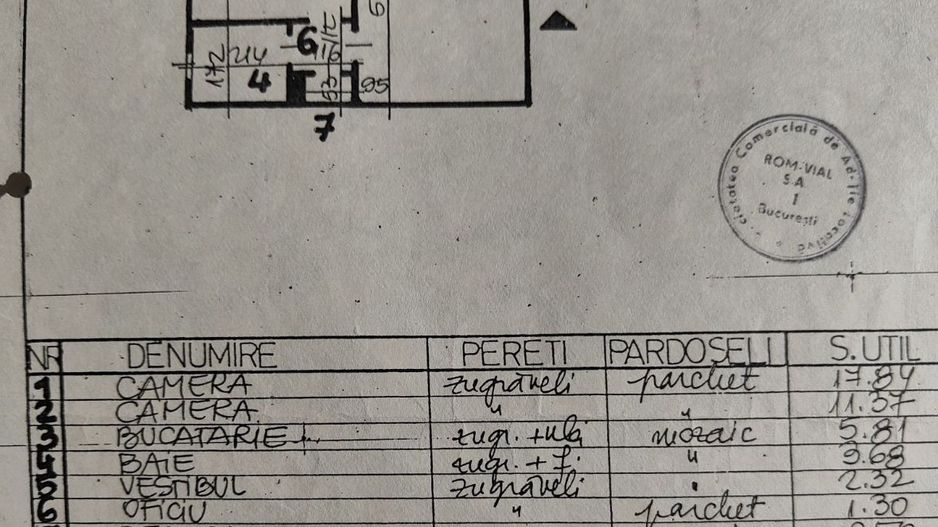 6
172
214
4
6
116
53
95
7
Societatea Comercială de Ad-ție Locativă
ROM-VIAL
S.A.
1
București
NR DENUMIRE PERETI PARDOSELI S.UTIL
1 CAMERA zugraveli parchet 17.84
2 CAMERA " " 11.37
3 BUCATARIE zugr. + mozaic 5.81
4 BAIE zugr. + f. " 3.68
5 VESTIBUL zugraveli " 2.32
6 OFICIU " parchet 1.30